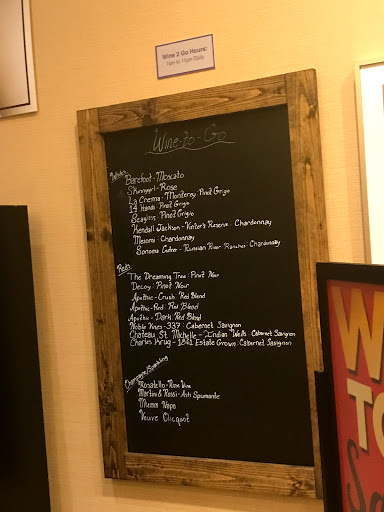 Wine 2 Go Hours:
11am to 11pm Daily
Wine-to-Go
Whites
Barefoot - Moscato
Skinnygirl - Rose
La Crema - Monterey Pinot Grigio
14 Hands - Pinot Grigio
Seaglass - Pinot Grigio
Kendall Jackson - Vinter's Reserve - Chardonnay
Meiomi - Chardonnay
Sonoma Cutrer - Russian River Ranches - Chardonnay
Reds
The Dreaming Tree - Pinot Noir
Decoy - Pinot Noir
Apothic - Crush Red Blend
Apothic - Red Red Blend
Apothic - Dark Red Blend
Noble Vines - 337 - Cabernet Sauvignon
Chateau St Michelle - Indian Wells - Cabernet Sauvignon
Charles Krug - 1861 Estate Grown - Cabernet Sauvignon
Champagne/Sparkling
Rosatello - Rose Wine
Martini & Rossi - Asti Spumante
Mumm Napa
Veuve Clicquot
W
TO